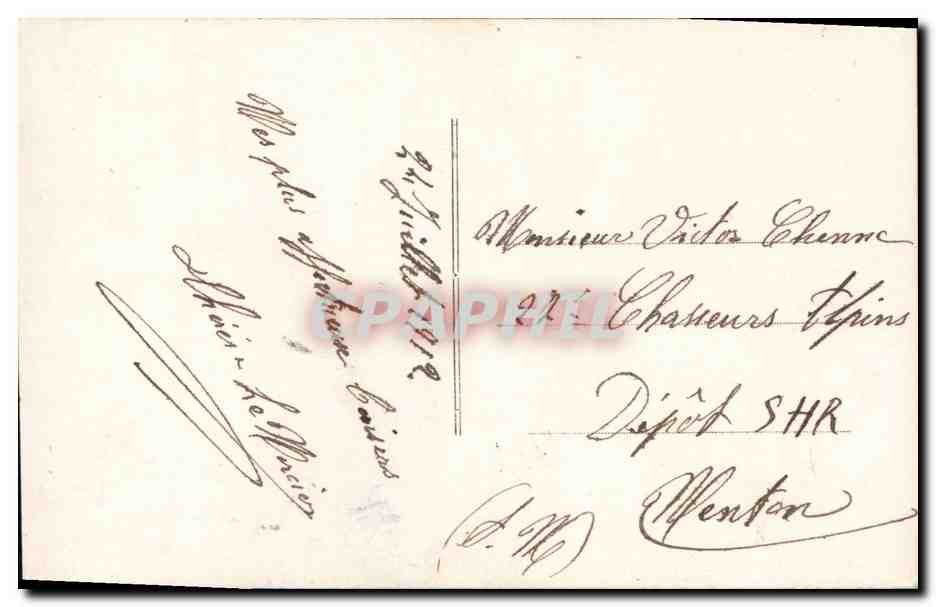 24 Juillet 1912
Mes plus affectueux baisers
Le
Monsieur Victor
22e Chasseurs Alpins
Dépôt SHR
Menton
(A. M)
CPAPHIL